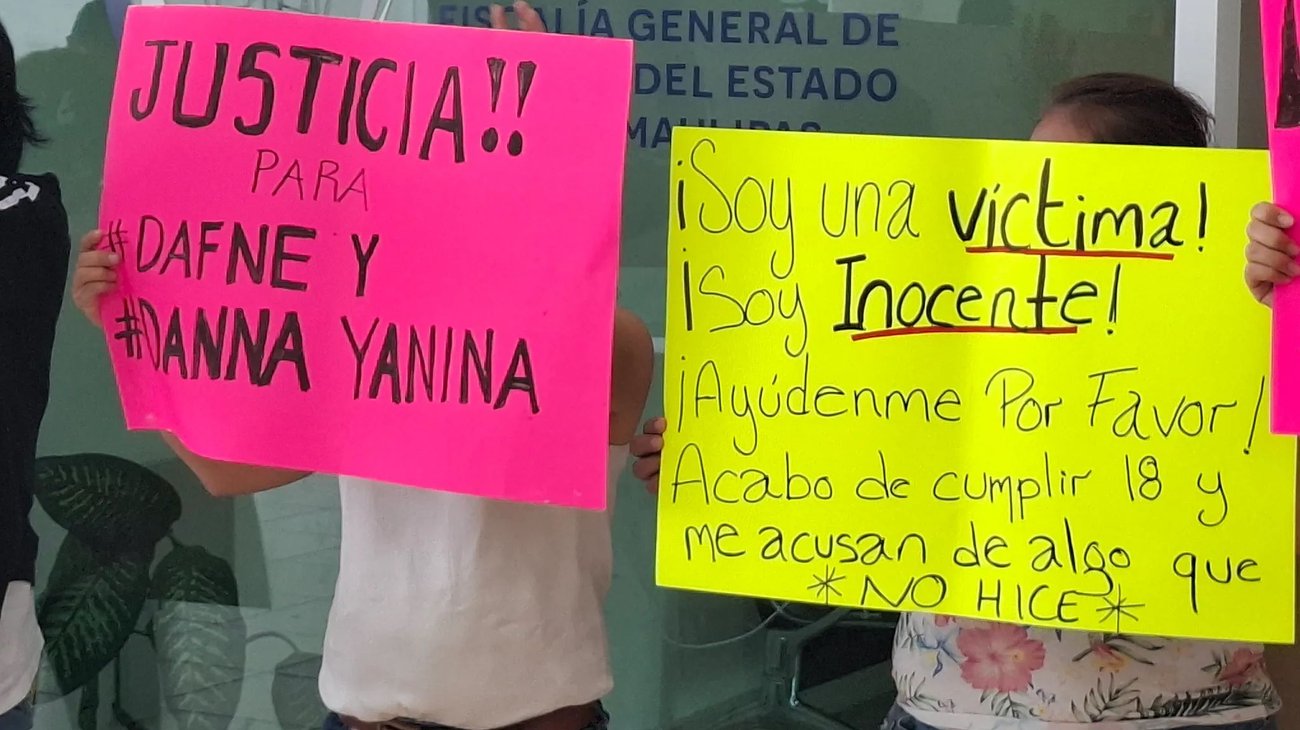 FISCALÍA GENERAL DE
DEL ESTADO
JUSTICIA!!
PARA
#DAFNE Y
#DANNA YANINA
¡Soy una víctima!
¡Soy Inocente!
¡Ayúdenme Por Favor!
Acabo de cumplir 18 y
me acusan de algo que
*NO HICE*